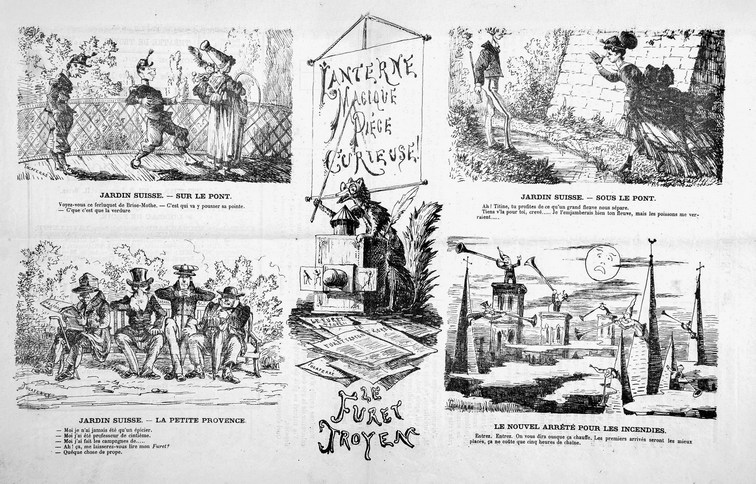 JARDIN SUISSE. — SUR LE PONT.
Voyez-vous ce ferluquet de Brise-Mothe. — C'est qui va y pousser sa pointe.
— C'que c'est que la verdure
JARDIN SUISSE. — LA PETITE PROVENCE.
— Moi je n'ai jamais été qu'un épicier.
— Moi j'ai été professeur de cinéisme.
— Moi j'ai fait les campagnes de.....
— Ah! ça, me laisserez-vous lire mon Furet?
— Quéque chose de prope.
LANTERNE
MAGIQUE
PIÈCE
CURIEUSE!
LE
FURET
TROYEN
JARDIN SUISSE. — SOUS LE PONT.
Ah! Titine, tu profites de ce qu'un grand fleuve nous sépare.
Tiens v'là pour toi, crevé..... Je l'enjamberais bien ton fleuve, mais les poissons me ver-
raient.....
LE NOUVEL ARRÊTÉ POUR LES INCENDIES.
Entrez, Entrez. On vous dira ousque ça chauffe. Les premiers arrivés seront les mieux
placés, ça ne coûte que cinq heures de chaîne.